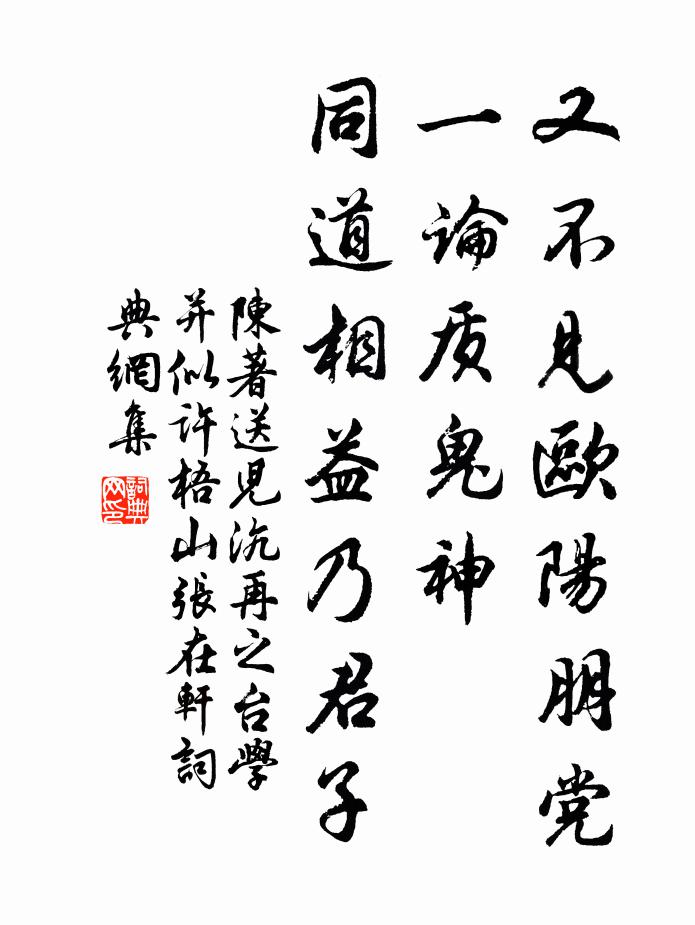 又不見歐陽朋党
一論质鬼神
同道相益乃君子
陳著送児沆再之台學
并似许梧山張在軒詞
典網集
詞典网印